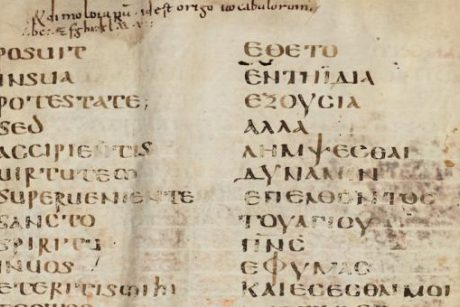 id est origo uocabulorum
POSUIT ΕΘΕΤΟ
INSUA ΕΝΤΗΙΔΙΑ
POTESTATE; ΕΞΟΥСΙΑ
SED ΑΛΛΑ
ACCIPIENTIS ΛΗΜΨΕСΘΑΙ
UIRTUTEM ΔΥΝΑΜΙΝ
SUPERUENIENTE ΕΠΕΛΘΟΝΤΟС
SANCTO ΤΟΥΑΓΙΟΥ
SPIRITU ΠΝС
INUOS ΕΦΥΜΑС
ETERITISMIHI ΚΑΙΕСΕСΘΑΙΜΟΙ